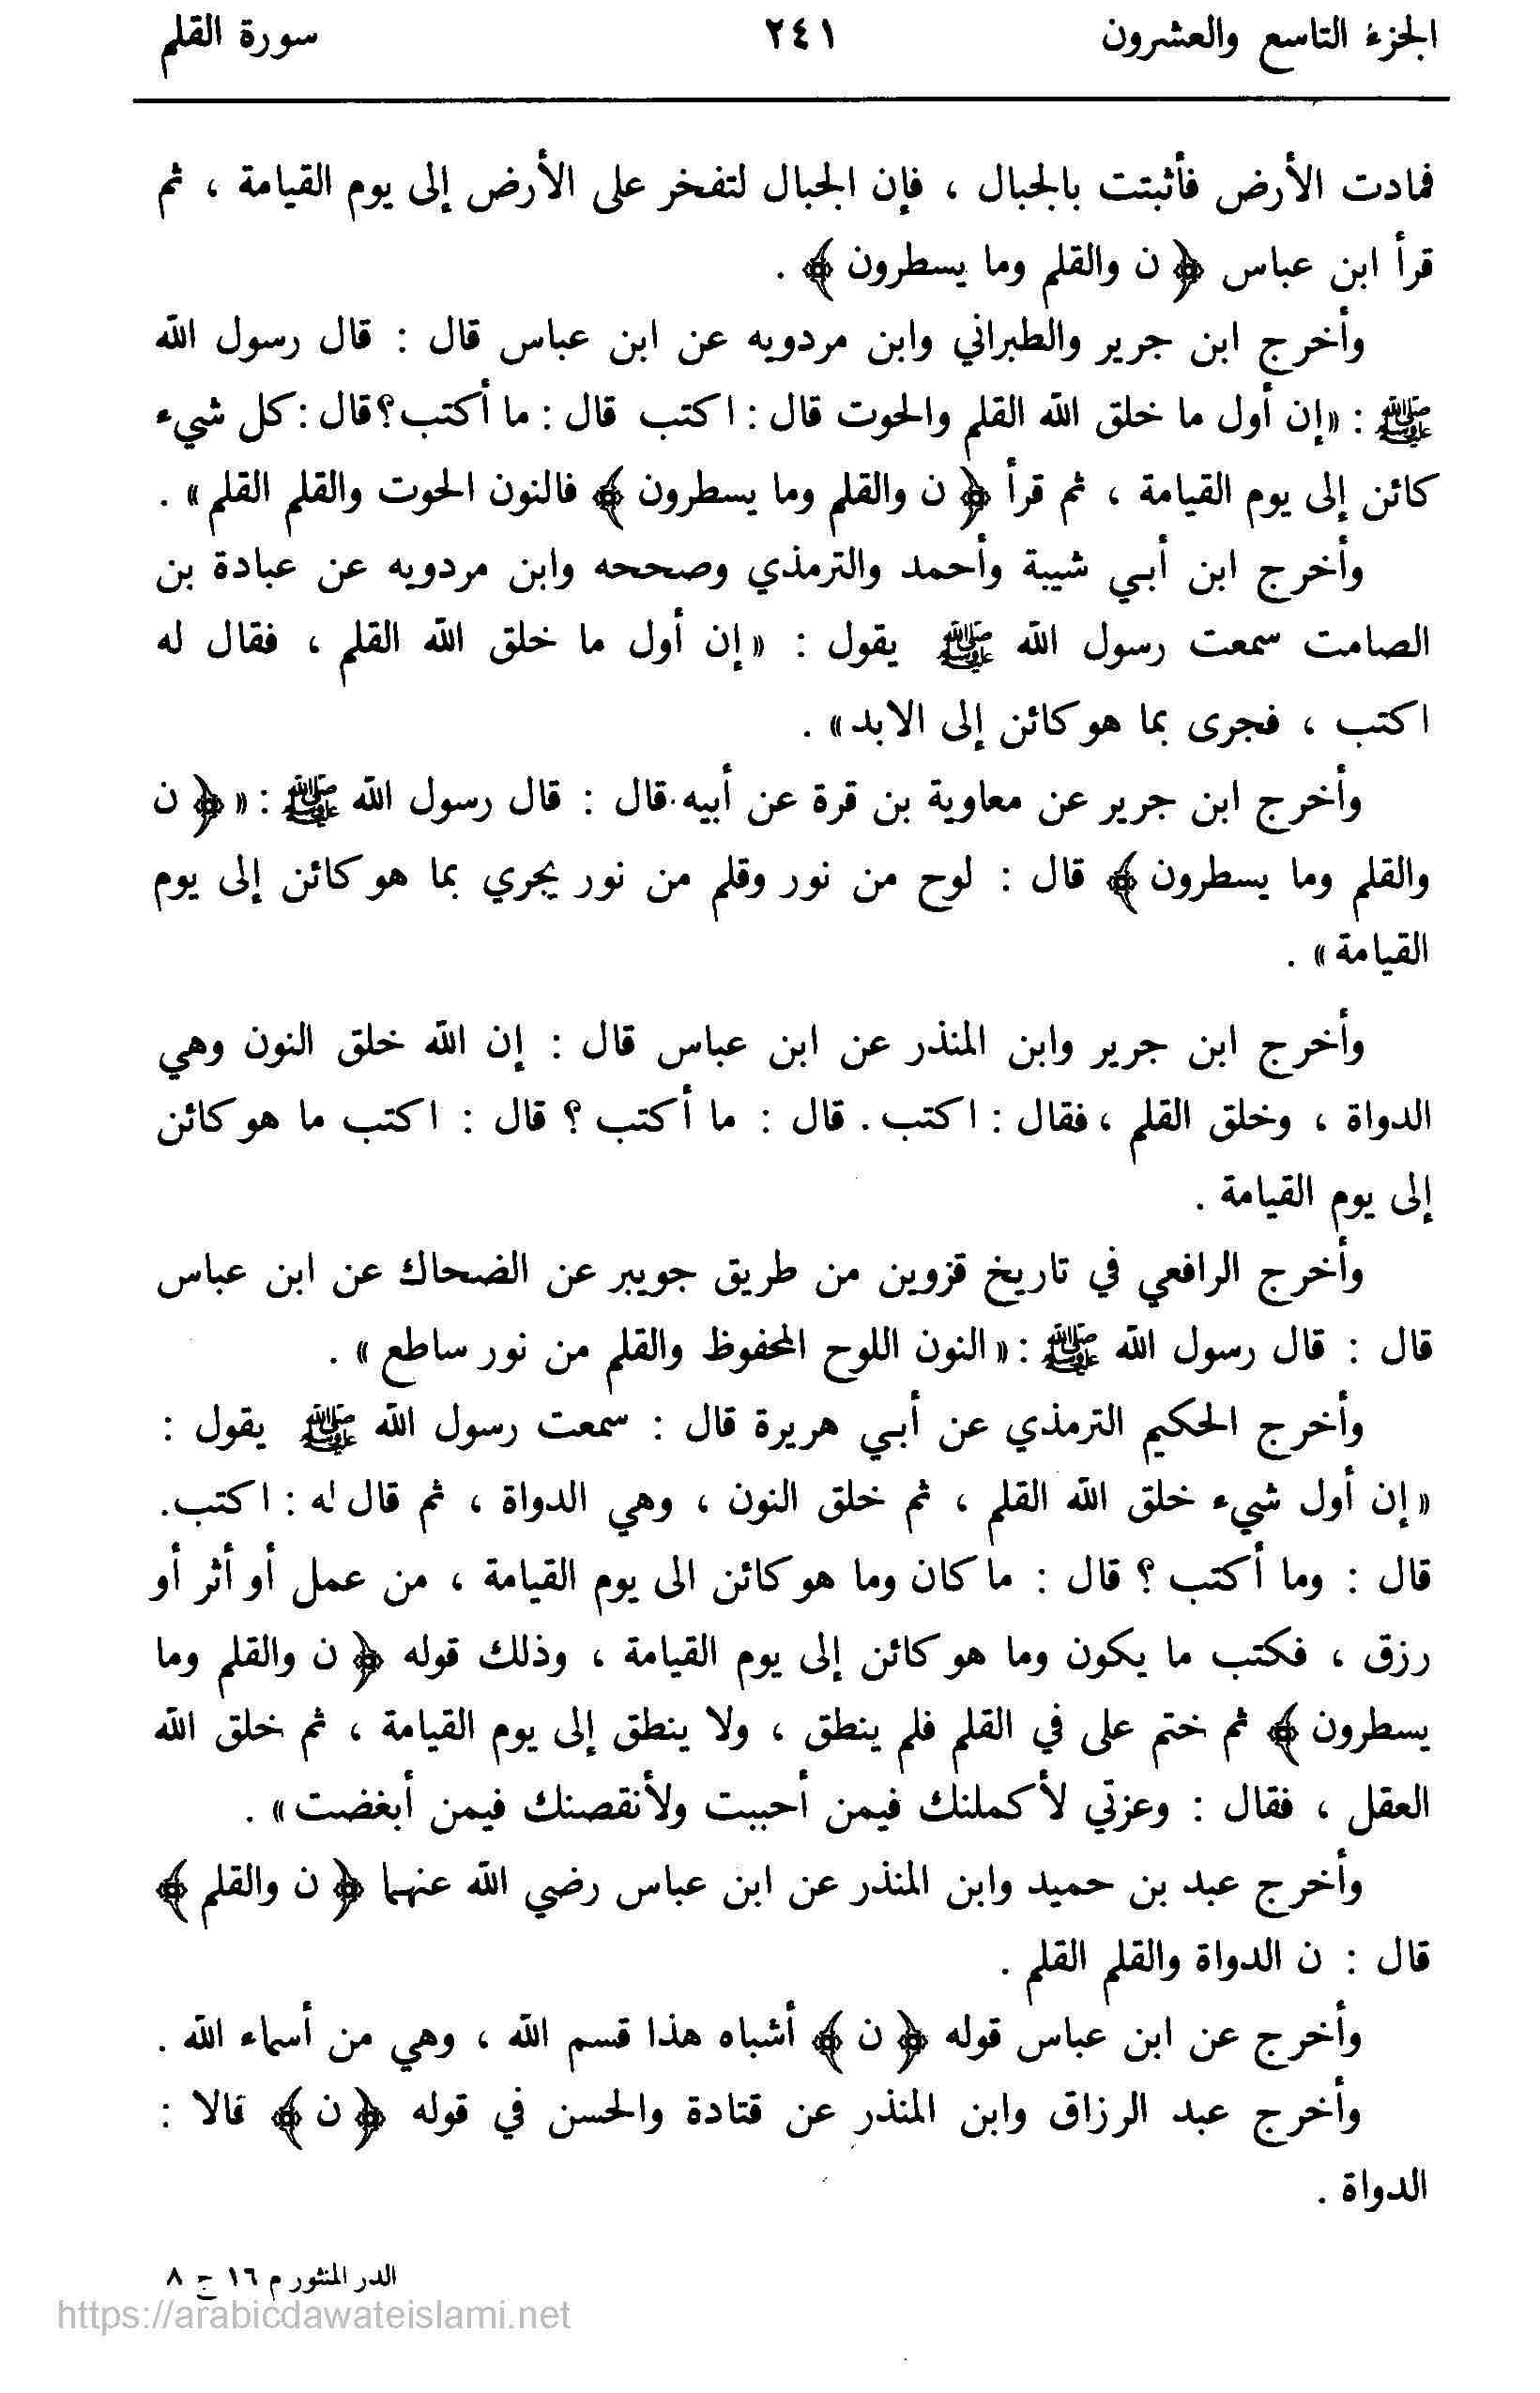 الجزء التاسع والعشرون ٢٤١ سورة القلم
فمادت الأرض فأثبتت بالجبال ، فإن الجبال لتفخر على الأرض إلى يوم القيامة ، ثم
قرأ ابن عباس ﴿ ن والقلم وما يسطرون ﴾ .
وأخرج ابن جرير والطبراني وابن مردويه عن ابن عباس قال : قال رسول الله
ﷺ : «إن أول ما خلق الله القلم والحوت قال : اكتب قال : ما أكتب؟ قال : كل شيء
كائن إلى يوم القيامة ، ثم قرأ ﴿ ن والقلم وما يسطرون ﴾ فالنون الحوت والقلم القلم» .
وأخرج ابن أبي شيبة وأحمد والترمذي وصححه وابن مردويه عن عبادة بن
الصامت سمعت رسول الله ﷺ يقول : «إن أول ما خلق الله القلم ، فقال له
اكتب ، فجرى بما هو كائن إلى الابد» .
وأخرج ابن جرير عن معاوية بن قرة عن أبيه قال : قال رسول الله ﷺ : «﴿ ن
والقلم وما يسطرون ﴾ قال : لوح من نور وقلم من نور يجري بما هو كائن إلى يوم
القيامة» .
وأخرج ابن جرير وابن المنذر عن ابن عباس قال : إن الله خلق النون وهي
الدواة ، وخلق القلم ، فقال : اكتب . قال : ما أكتب ؟ قال : اكتب ما هو كائن
إلى يوم القيامة .
وأخرج الرافعي في تاريخ قزوين من طريق جويبر عن الضحاك عن ابن عباس
قال : قال رسول الله ﷺ : «النون اللوح المحفوظ والقلم من نور ساطع» .
وأخرج الحكيم الترمذي عن أبي هريرة قال : سمعت رسول الله ﷺ يقول :
«إن أول شيء خلق الله القلم ، ثم خلق النون ، وهي الدواة ، ثم قال له : اكتب.
قال : وما أكتب ؟ قال : ما كان وما هو كائن الى يوم القيامة ، من عمل أو أثر أو
رزق ، فكتب ما يكون وما هو كائن إلى يوم القيامة ، وذلك قوله ﴿ ن والقلم وما
يسطرون ﴾ ثم ختم على في القلم فلم ينطق ، ولا ينطق إلى يوم القيامة ، ثم خلق الله
العقل ، فقال : وعزتي لأكملنك فيمن أحببت ولأنقصنك فيمن أبغضت» .
وأخرج عبد بن حميد وابن المنذر عن ابن عباس رضي الله عنهما ﴿ ن والقلم ﴾
قال : ن الدواة والقلم القلم .
وأخرج عن ابن عباس قوله ﴿ ن ﴾ أشباه هذا قسم الله ، وهي من أسماء الله .
وأخرج عبد الرزاق وابن المنذر عن قتادة والحسن في قوله ﴿ ن ﴾ قالا :
الدواة .
الدر المنثور م ١٦ ج ٨
https://arabicdawateislami.net